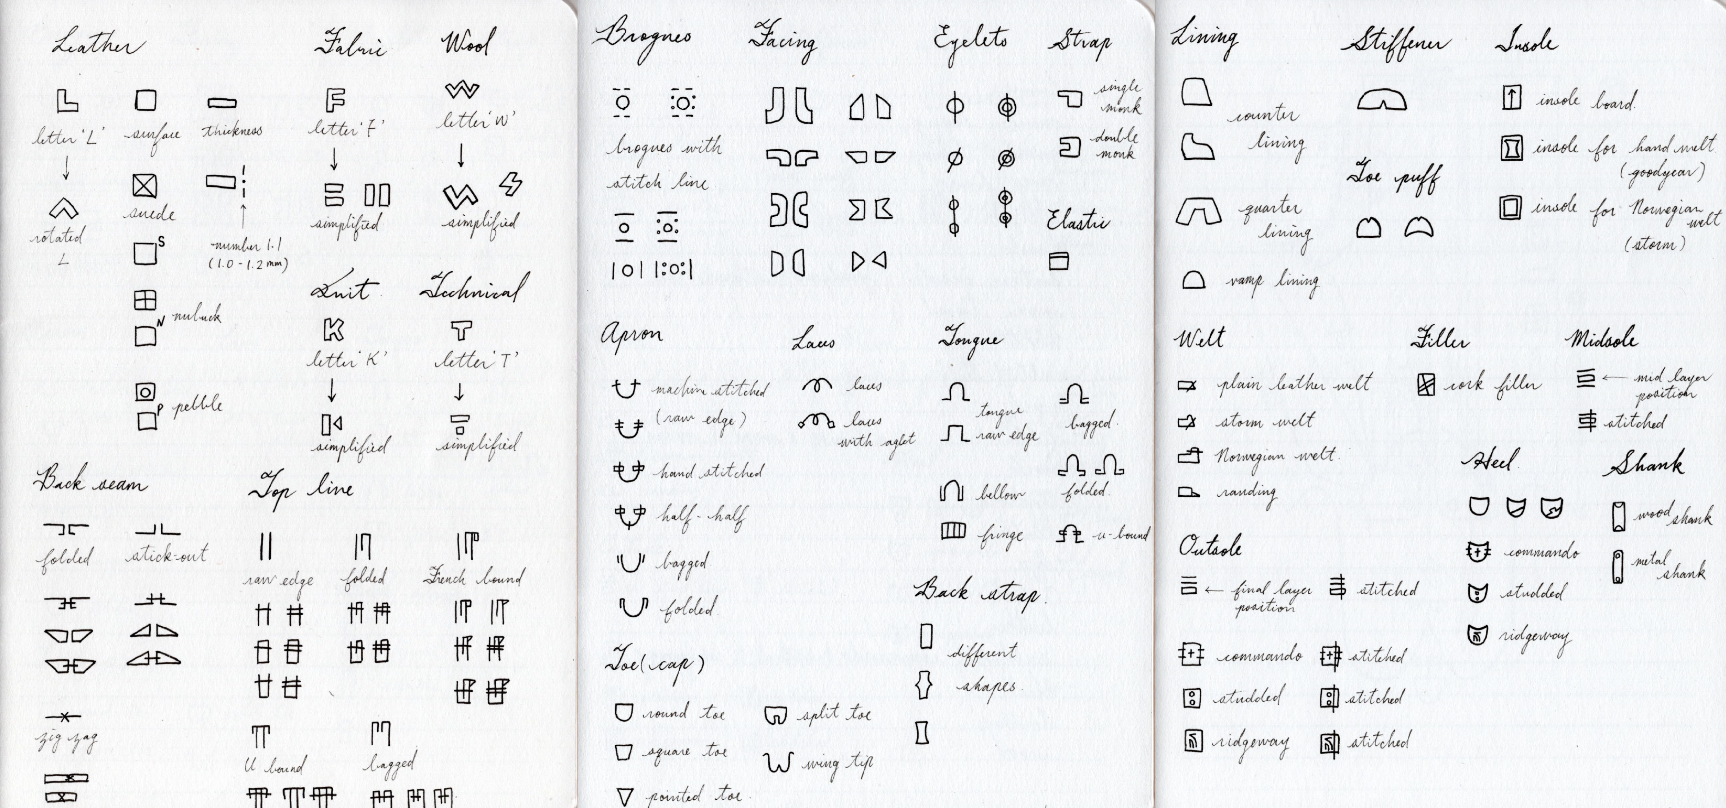 Leather
Fabric
Wool
letter 'L'
surface
thickness
letter 'F'
letter 'W'
rotated
L
suede
S
number 1.1
(1.0 - 1.2 mm)
simplified
simplified
nubuck
N
pebble
P
Knit
Technical
letter 'K'
letter 'T'
simplified
simplified
Back seam
Top line
folded
stick-out
raw edge
folded
French bound
zig zag
U bound
bagged
Brogues
Facing
Eyelets
Strap
single
monk
double
monk
brogues with
stitch line
Elastic
Apron
Laces
Tongue
machine stitched
(raw edge)
hand stitched
half-half
bagged
folded
laces
laces
with aglet
tongue
raw edge
bagged
folded
bellow
fringe
u-bound
Back strap
different
shapes
Toe (cap)
round toe
split toe
square toe
wing tip
pointed toe
Lining
Stiffener
Insole
counter
lining
quarter
lining
vamp lining
Toe puff
insole board
insole for hand welt
(goodyear)
insole for Norwegian
welt
(storm)
Welt
Filler
Midsole
plain leather welt
storm welt
Norwegian welt
randing
cork filler
mid layer
position
stitched
Heel
Shank
commando
studded
ridgeway
wood shank
metal
shank
Outsole
final layer
position
stitched
commando
stitched
studded
stitched
ridgeway
stitched